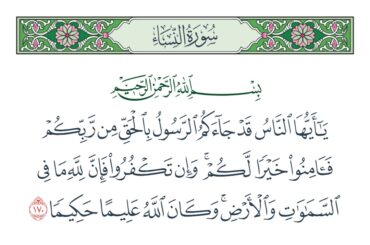 سُورَةُ النِّسَاءِ
بِسْمِ اللَّهِ الرَّحْمَٰنِ الرَّحِيمِ
يَـٰٓأَيُّهَا النَّاسُ قَدْ جَآءَكُمُ الرَّسُولُ بِالْحَقِّ مِن رَّبِّكُمْ
فَـَٔامِنُوا۟ خَيْرًا لَّكُمْ ۚ وَإِن تَكْفُرُوا۟ فَإِنَّ لِلَّهِ مَا فِى
السَّمَـٰوَٰتِ وَالْأَرْضِ ۚ وَكَانَ اللَّهُ عَلِيمًا حَكِيمًا ١٧٠